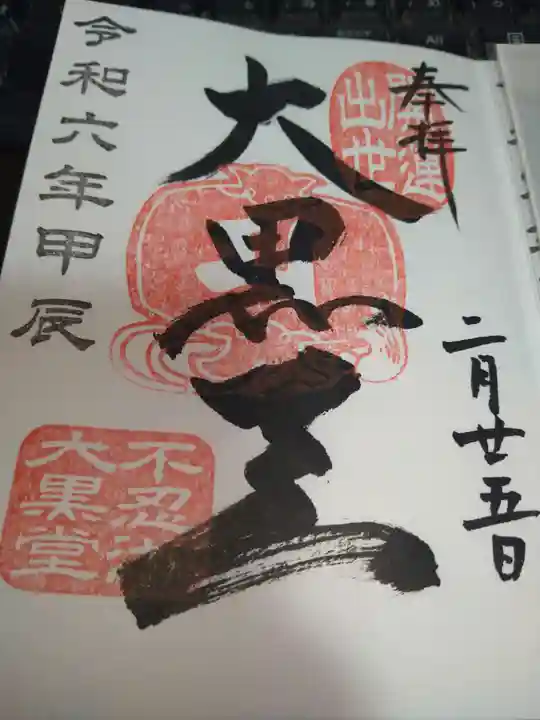 奉拝
二月廿五日
開運
出世
大黒天
不忍池
大黒堂
令和六年甲辰